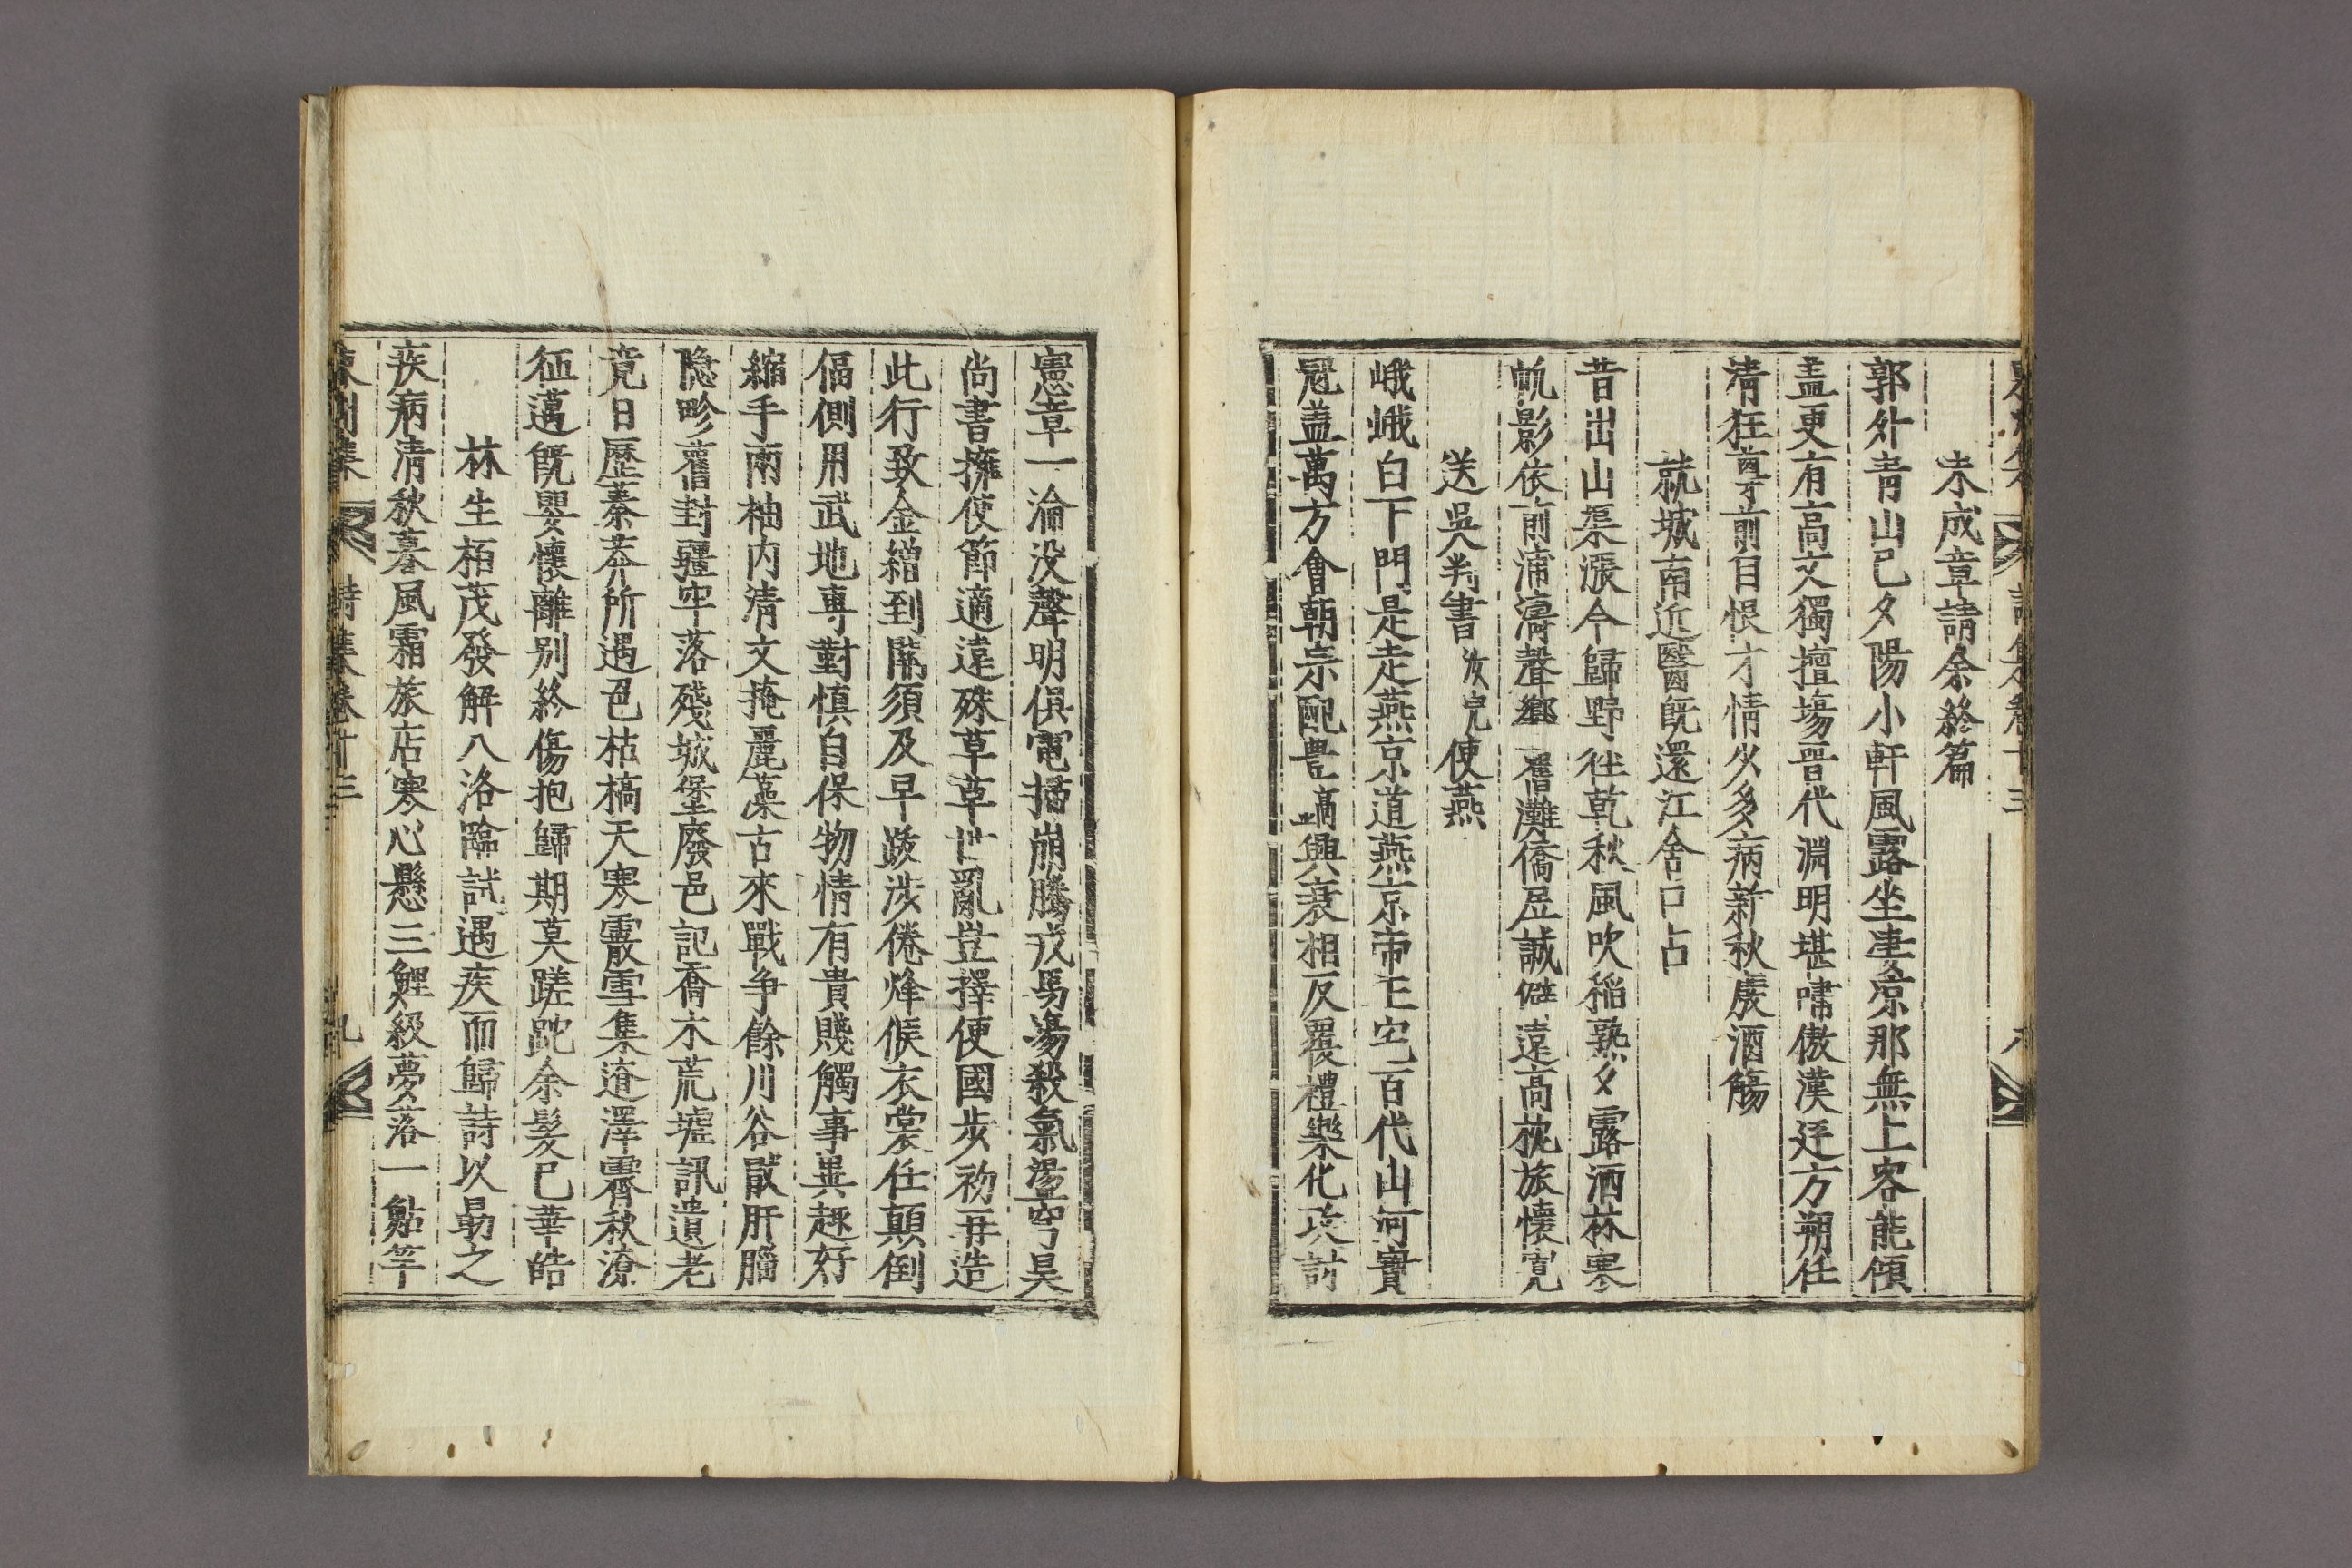 詩集卷十三 八
未成章請余終篇
郭外靑山已夕陽小軒風露坐凄凉那無上客能傾
盖更有高文獨擅場晋代淵明堪嘯傲漢廷方朔任
淸狂尊前自恨才情少多病新秋廢酒觴
就城南近醫旣還江舍口占
昔出山渠漲今歸野徃乾秋風吹稲熟夕露洒林寒
帆影依前浦濤聲鄕舊灘僑居誠僻遠高枕旅懷寬
送吳判書汝完使燕
峨峨白下門是走燕京道燕京帝王宅百代山河寶
冠盖萬方會朝宗配豊鎬興衰相反覆禮樂化攻討
憲章一淪没聲明俱電掃崩騰戎馬蕩殺氣盪穹昊
尙書擁使節適遠殊草草世亂豈擇便國步初再造
此行致金繒到關須及早跋涉倦烽候衣裳任顚倒
偪側用武地專對愼自保物情有貴賤觸事異趣好
縮手兩袖内淸文掩麗藻古來戰爭餘川谷厭肝腦
隐畛舊封疆牢落殘城堡廢邑記喬木荒墟訊遺老
竟日歷蓁莽所遇色枯槁天寒霰雪集遼澤霽秋潦
征邁旣嬰懷離别終傷抱歸期莫蹉跎余髮已華皓
林生栢茂發解八洛臨試遇疾而歸詩以勗之
疾病淸秋暮風霜旅店寒心懸三鯉級夢落一鮎竿
東州集 詩集卷十三 九